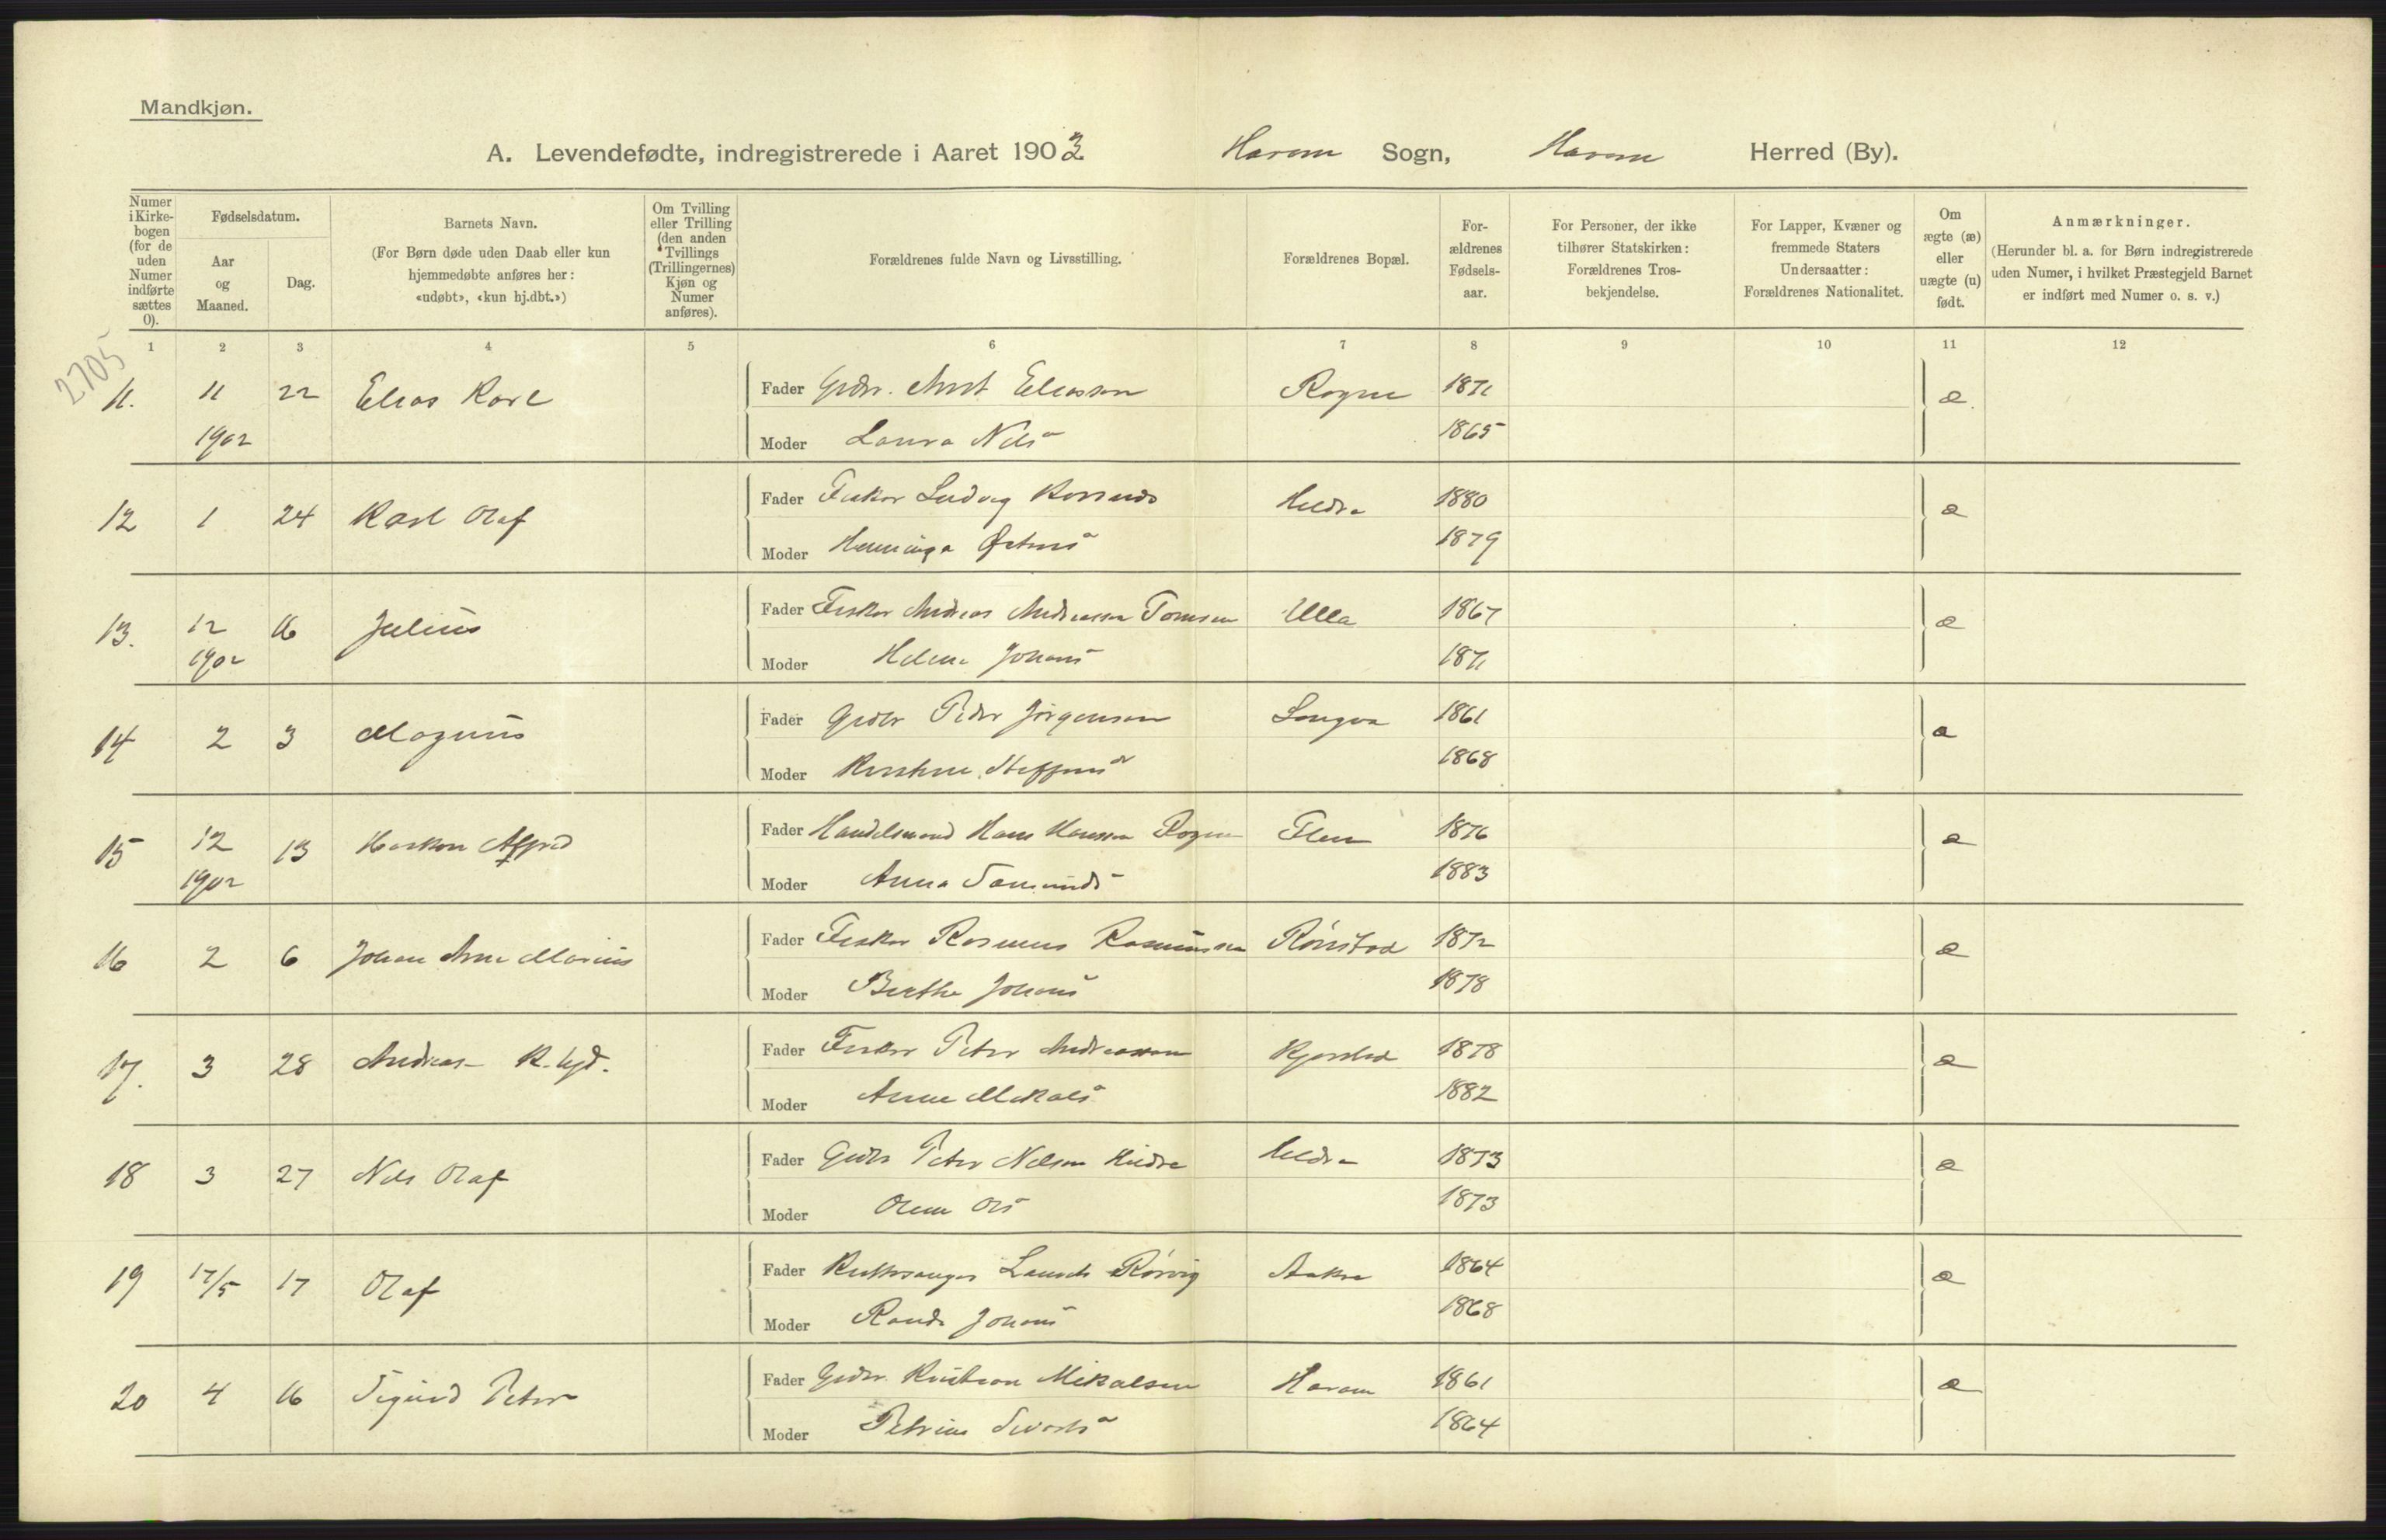 Mandkjøn.
A. Levendefødte, indregistrerede i Aaret 1903 Haram Sogn, Haram Herred (By).
Numer i Kirke-bogen (for de uden Numer indførte sættes 0).
Fødselsdatum.
Aar og Maaned.
Dag.
Barnets Navn.
(For Børn døde uden Daab eller kun hjemmedøbte anføres her: «udøbt», «kun hj.dbt.»)
Om Tvilling eller Trilling (den anden Tvillings (Trillingernes) Kjøn og Numer anføres).
Forældrenes fulde Navn og Livsstilling.
Forældrenes Bopæl.
For-ældrenes Fødsels-aar.
For Personer, der ikke tilhører Statskirken: Forældrenes Tros-bekjendelse.
For Lapper, Kvæner og fremmede Staters Undersaatter: Forældrenes Nationalitet.
Om ægte (æ) eller uægte (u) født.
Anmærkninger.
(Herunder bl. a. for Børn indregistrerede uden Numer, i hvilket Præstegjeld Barnet er indført med Numer o. s. v.)
1 2 3 4 5 6 7 8 9 10 11 12
2705
11. 11 22 Elias Karl Fader Grdbr. Eliassen Rogne 1871 æ.
1902 Moder Laura Nilsd 1865
12 1 24 Karl Olaf Fader Fisker Ludvig Hildre 1880 æ
Moder 1879
13. 12 16 Julius Fader Fisker Andreas Andreassen Ulla 1867 æ
1902 Moder Helene Johansd 1871
14 2 3 Magnus Fader Grdbr Peder Jørgensen Longva 1861 æ
Moder Steffensd 1868
15 12 13 Haakon Alfred Fader Handelsmand Hans Hanssen Rogne Flem 1876 æ
1902 Moder Anna 1883
16 2 6 Johan Arne Marius Fader Fisker Rasmus Rasmussen Rønstad 1872 æ
Moder Berthe Johansd 1878
17. 3 28 Andreas Fader Fisker Peter Andreassen Kjerstad 1878 æ
Moder Anne 1882
18 3 27 Nils Olaf Fader Grdbr Peter Nilsen Hildre Hildre 1873 æ
Moder Olsd 1873
19 17/5 17 Olaf Fader Kirkesanger Rørvig Aakre 1864 æ
Moder Johansd 1868
20 4 16 Sigurd Peter Fader Grdbr. Kristian Mikalsen Haram 1861 æ
Moder Petrine 1864